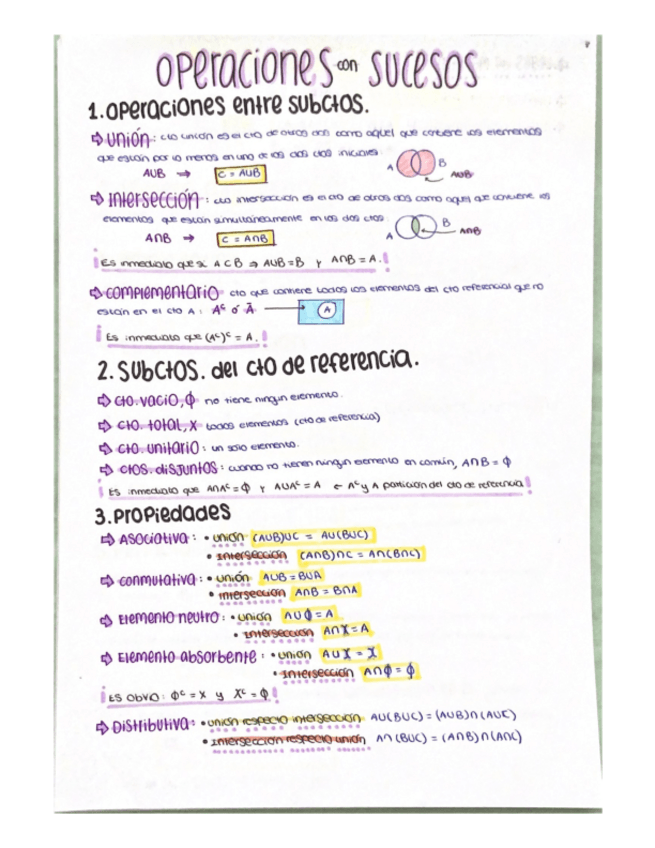 OPERACIONES con SUCESOS
1. OPERACIONES ENTRE SUBCTOS.
⇨ UNIÓN: cto unión es el cto de otros dos como aquel que contiene los elementos
que están por lo menos en uno de los dos ctos iniciales.
A∪B → C = A∪B A B A∪B
⇨ INTERSECCIÓN: cto intersección es el cto de otros dos como aquel que contiene los
elementos que están simultáneamente en los dos ctos.
A∩B → C = A∩B A B A∩B
¡Es inmediato que si A ⊂ B ⇒ A∪B = B y A∩B = A.!
⇨ COMPLEMENTARIO cto que contiene todos los elementos del cto referencial que no
están en el cto A: Aᶜ ó Ā A
¡Es inmediato que (Aᶜ)ᶜ = A.!
2. SUBCTOS. del cto de referencia.
⇨ cto. vacio, ϕ no tiene ningún elemento.
⇨ cto. total, X todos elementos (cto de referencia)
⇨ cto. unitario: un solo elemento.
⇨ ctos. disjuntos: cuando no tienen ningún elemento en común, A∩B = ϕ
¡Es inmediato que A∩Aᶜ = ϕ y A∪Aᶜ = A ← Aᶜ y A partición del cto de referencia!
3. PROPIEDADES
⇨ ASOCIATIVA: • unión (A∪B)∪C = A∪(B∪C)
• intersección (A∩B)∩C = A∩(B∩C)
⇨ conmutativa: • unión A∪B = B∪A
• intersección A∩B = B∩A
⇨ Elemento neutro: • unión A∪ϕ = A
• intersección A∩X = A
⇨ Elemento absorbente: • unión A∪X = X
• intersección A∩ϕ = ϕ
¡ES OBVIO: ϕᶜ = X y Xᶜ = ϕ!
⇨ Distributiva: • unión respecto intersección A∪(B∪C) = (A∪B)∩(A∪C)
• intersección respecto unión A∩(B∪C) = (A∩B)∩(A∩C)